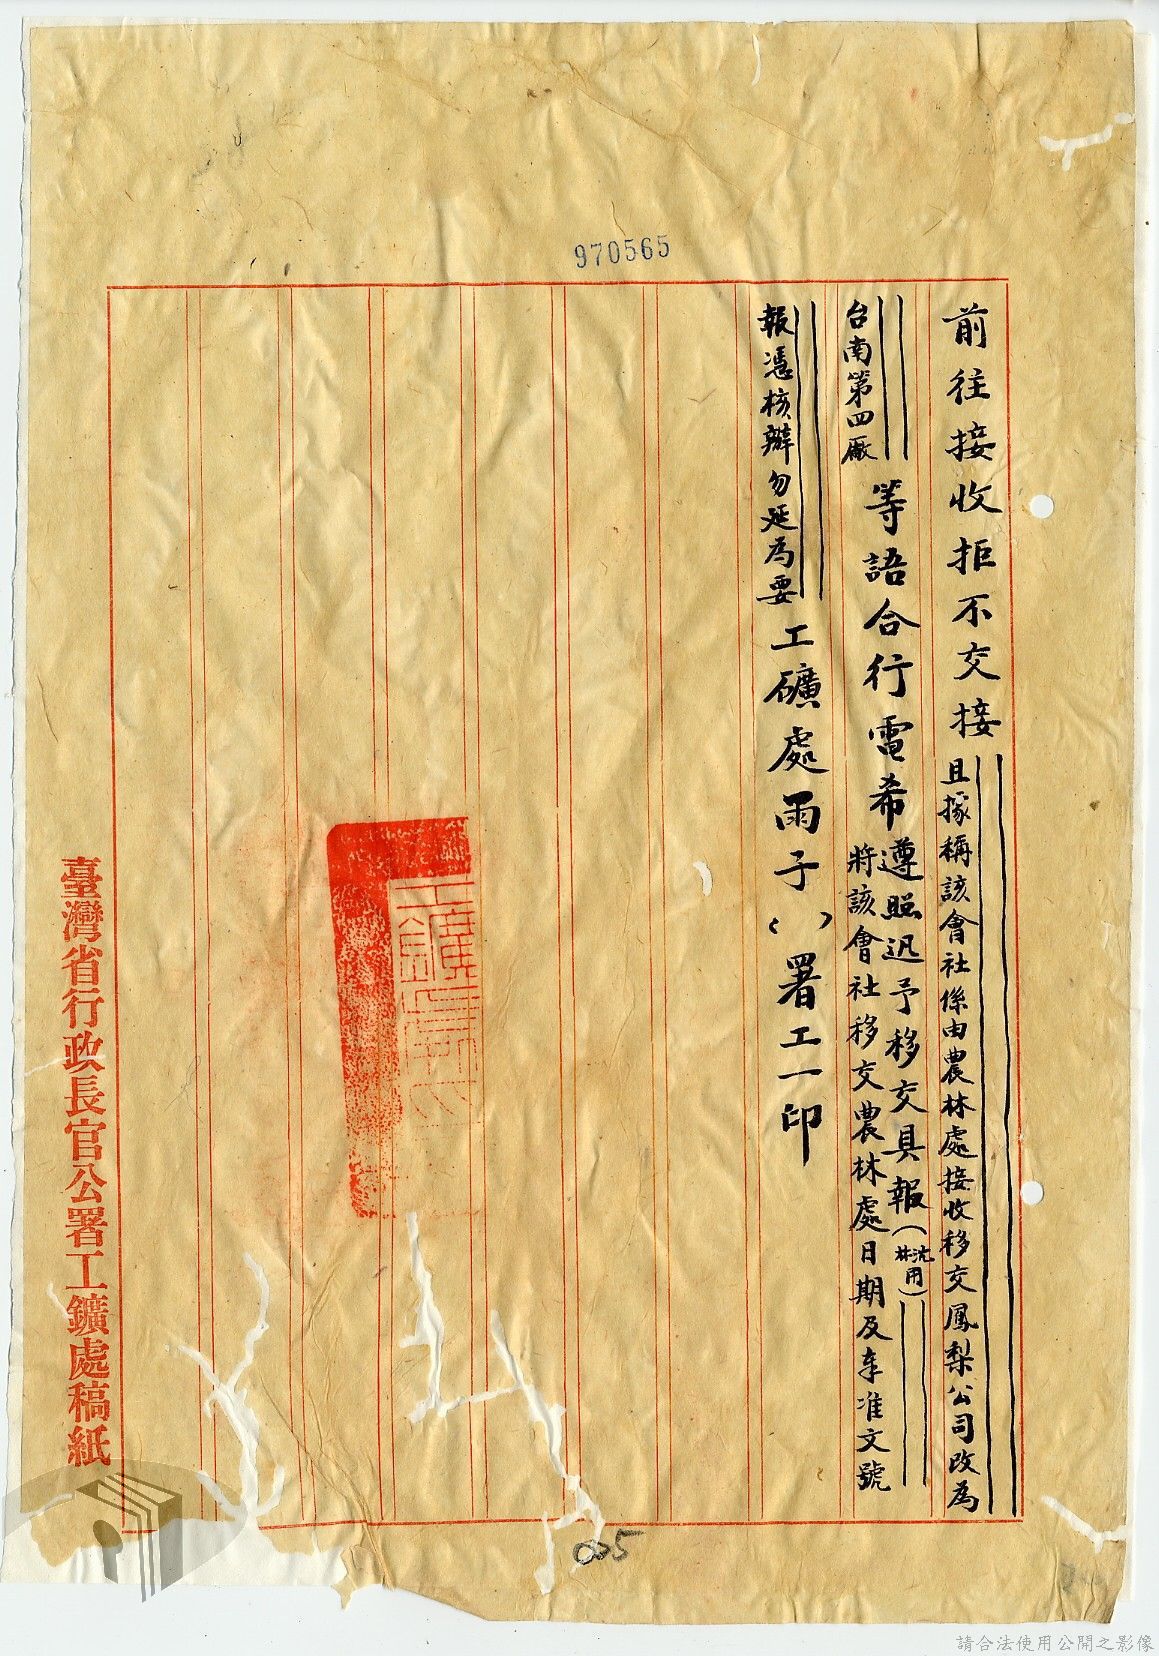 970565
前往接收拒不交接且據稱該會社係由農林處接收移交鳳梨公司改為
台南第四廠等語合行電希遵照迅予移交具報(沈林用)
將該會社移交農林處日期及奉准文號
報憑核辦勿延為要工礦處雨子( )署工一印
臺灣省行政長官公署工鑛處稿紙
005
請合法使用公開之影像